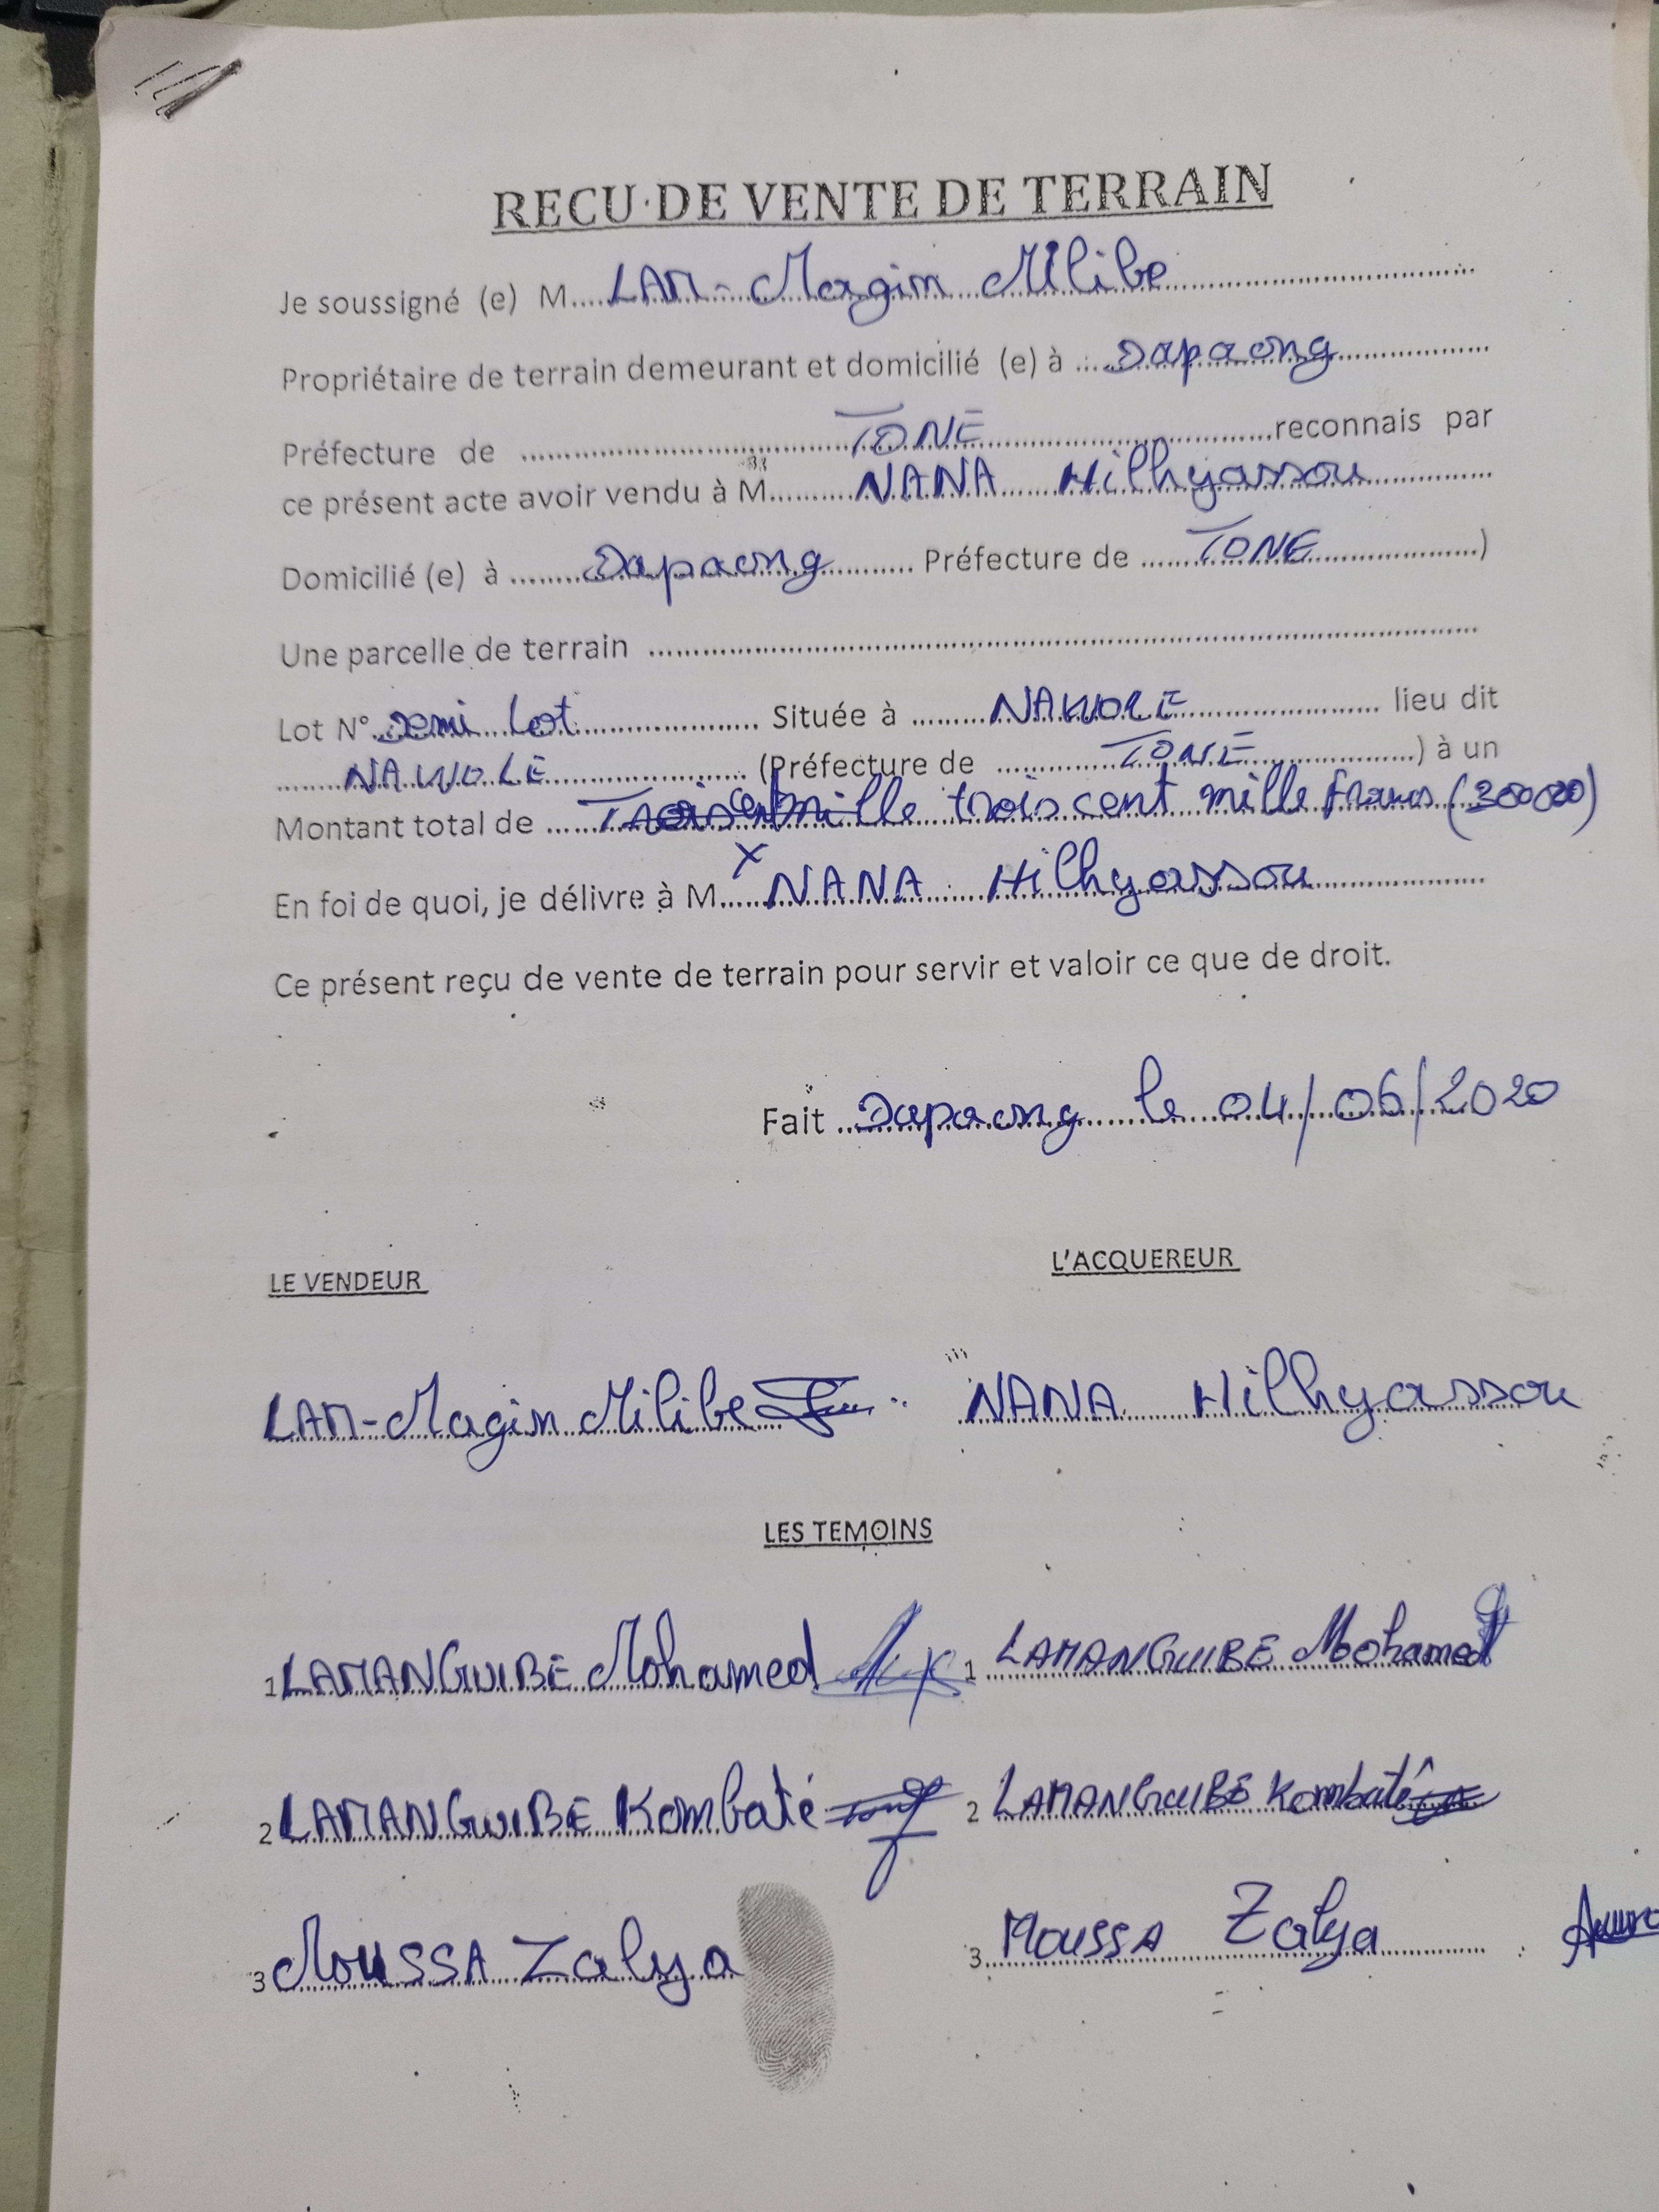 RECU DE VENTE DE TERRAIN
Je soussigné (e) M....LAM-Magim Milibe
Propriétaire de terrain demeurant et domicilié (e) à ....Dapaong
Préfecture de ....TONE....reconnais par
ce présent acte avoir vendu à M....NANA Hilhyassou
Domicilié (e) à ....Dapaong.... Préfecture de ....TONE....)
Une parcelle de terrain ....
Lot N° demi lot.... Située à ....NAWOLE.... lieu dit
....NAWOLE.... (Préfecture de ....TONE....) à un
Montant total de ....mille trois cent mille francs (300000)
En foi de quoi, je délivre à M....NANA Hilhyassou
Ce présent reçu de vente de terrain pour servir et valoir ce que de droit.
Fait ..Dapaong le 04/06/2020
LE VENDEUR L'ACQUEREUR
LAM-Magim Milibe NANA Hilhyassou
LES TEMOINS
1 LAMANGUIBE Mohamed 1 LAMANGUIBE Mohamed
2 LAMANGUIBE Kombaté 2 LAMANGUIBE Kombaté
3 MOUSSA Zalya 3 MOUSSA Zalya